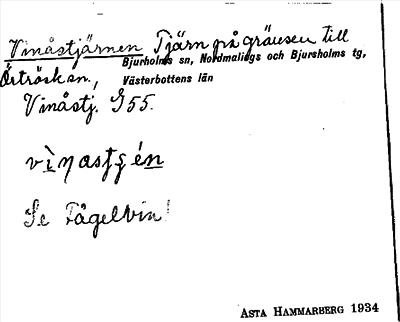 Vinåstjärnen Tjärn på gränsen till
Bjurholms sn, Nordmalings och Bjursholms tg,
Örträsk sn., Västerbottens län
Vinåstj. G55.
Se Fågelvin!
ASTA HAMMARBERG 1934